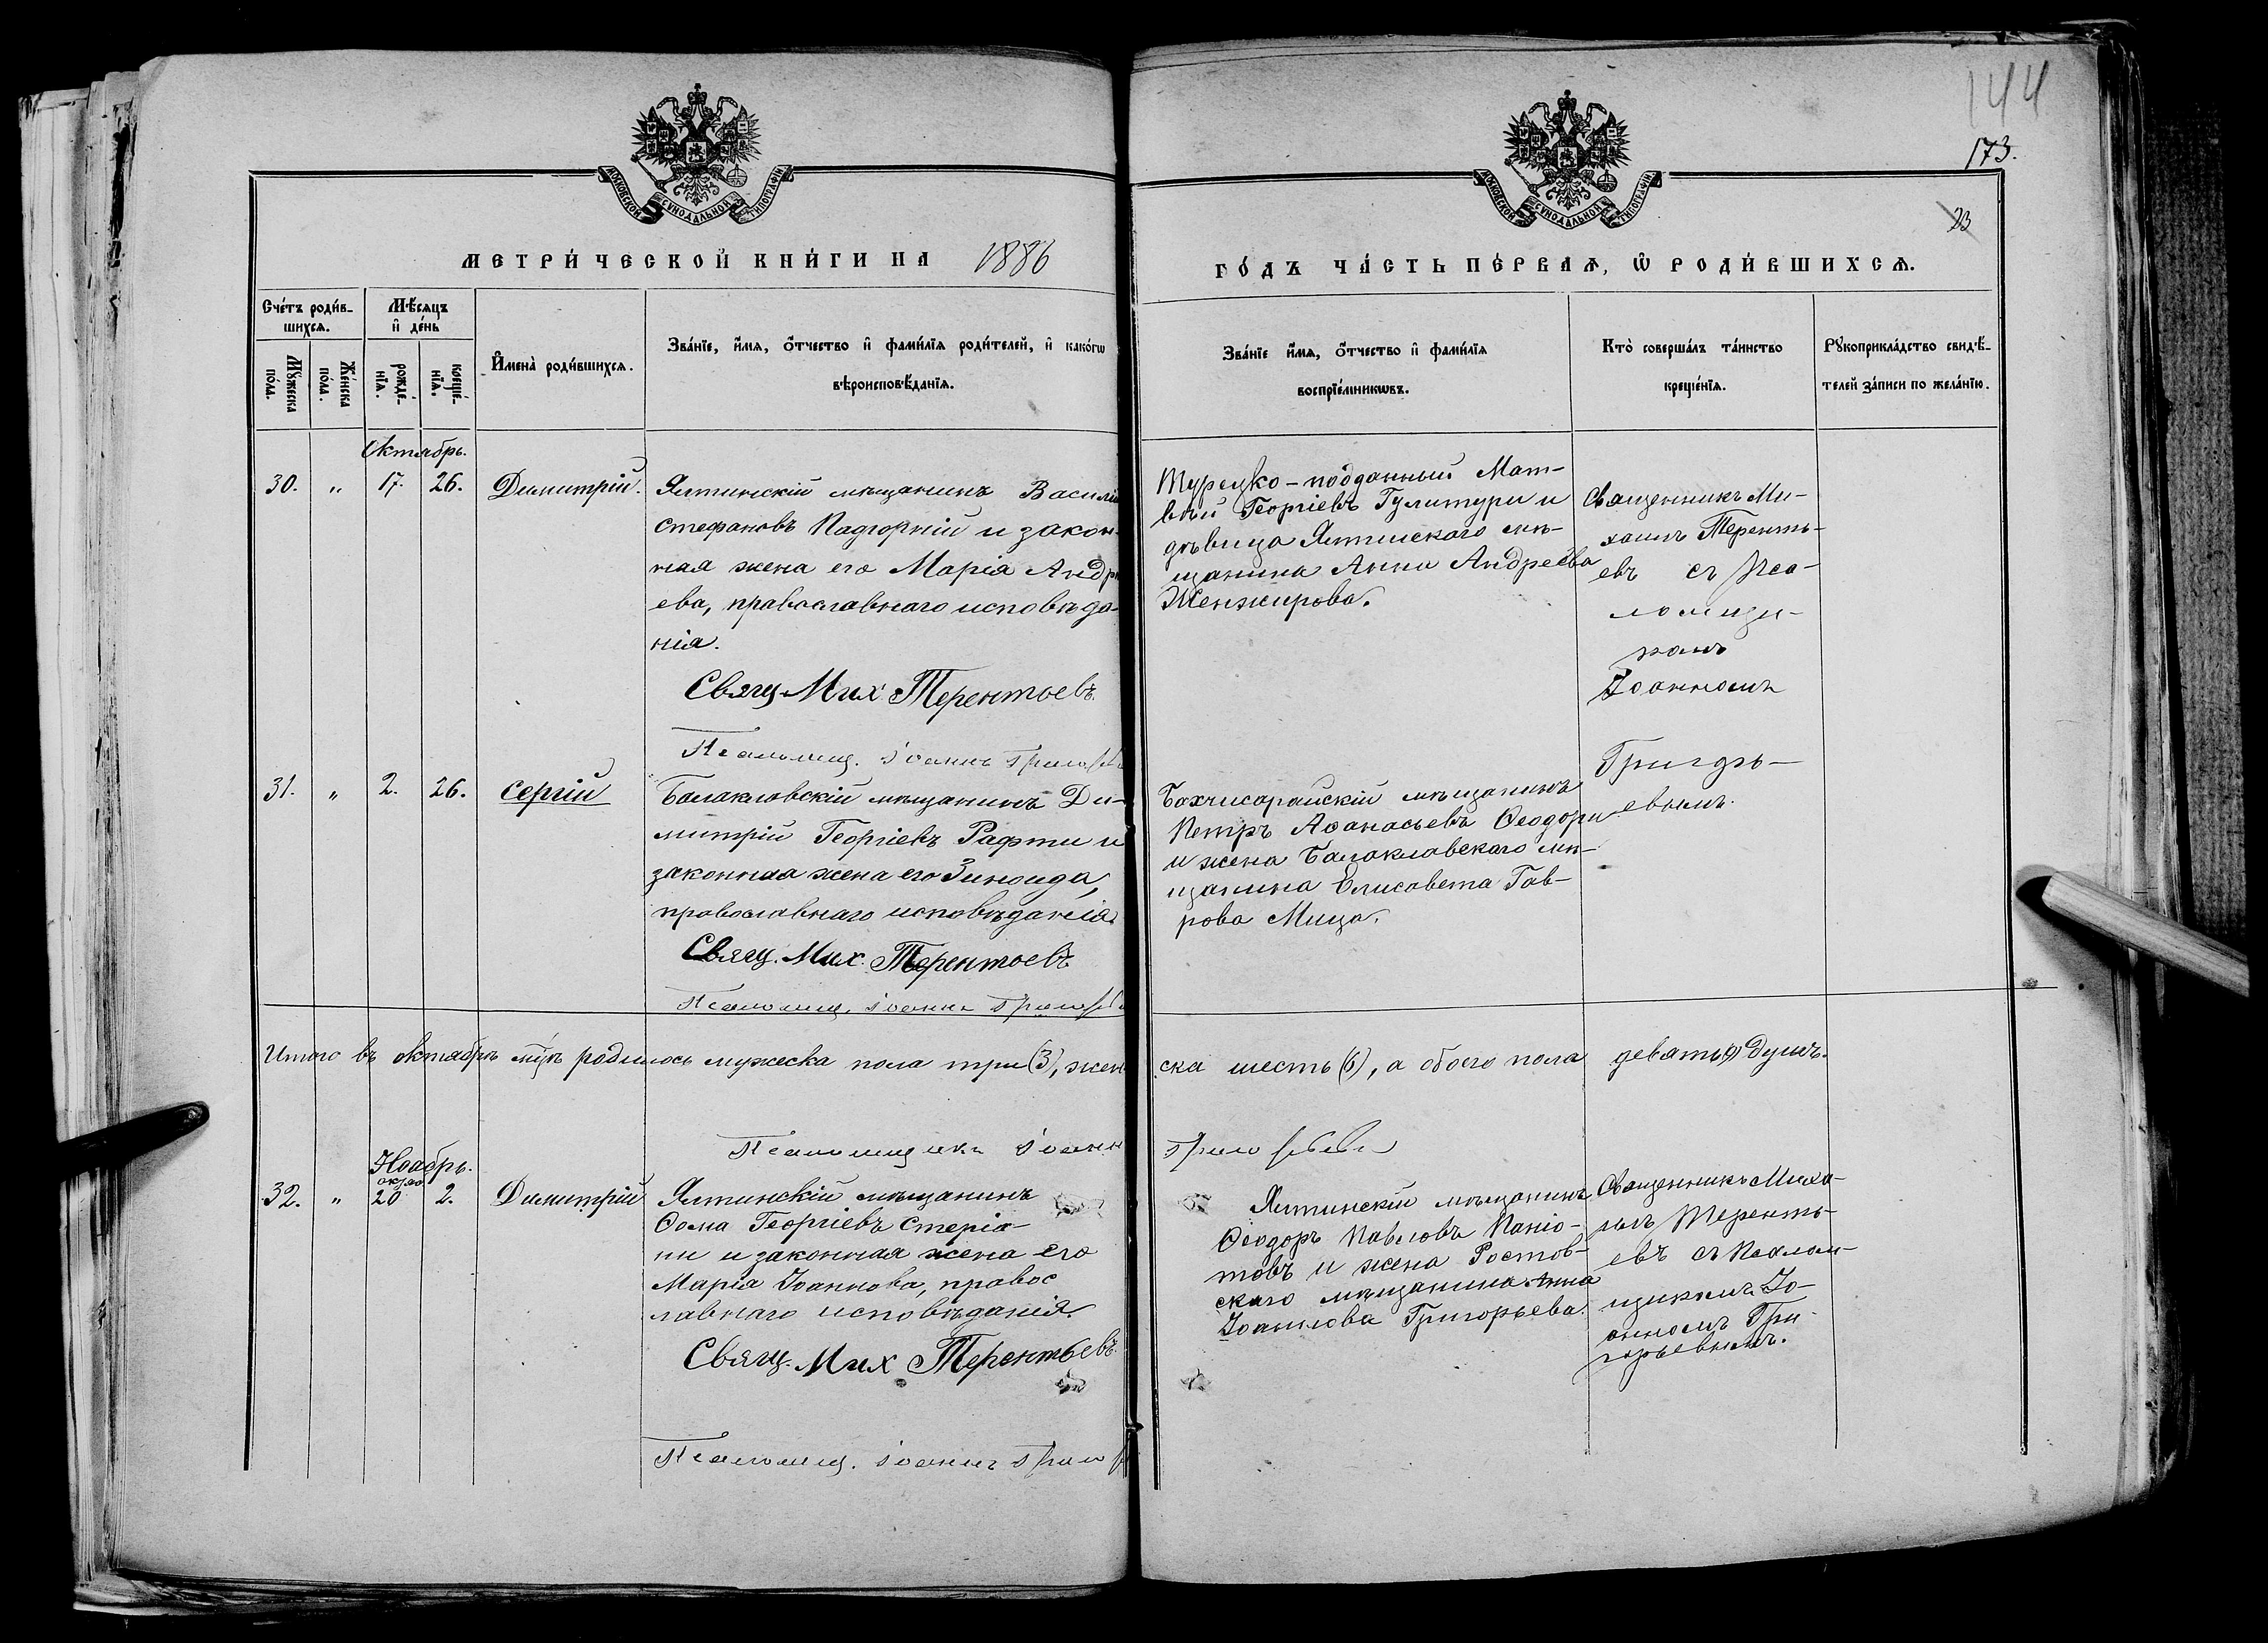 144
173.
23
МОСКОВСКОЙ СѴНОДАЛЬНОЙ ТИПОГРАФІИ
МОСКОВСКОЙ СѴНОДАЛЬНОЙ ТИПОГРАФІИ
МЕТРИ́ЧЕСКОЙ КНИ́ГИ НА 1886
ГО́ДЪ ЧА́СТЬ ПЕ́РВАѦ, Ѽ РОДИ́ВШИХСѦ.
Сче́тъ роди́в-
шихсѧ.
Мꙋ́жеска
по́ла.
Же́нска
по́ла.
Мѣ́сѧцъ
и҆ де́нь
рожде́-
нїѧ.
креще́-
нїѧ.
И҆мена̀ роди́вшихсѧ.
Зва́нїе, и҆́мѧ, ѻ҆́тчество и҆ фами́лїѧ роди́телей, и҆ како́гѡ
вѣроисповѣ́данїѧ.
Зва́нїе и҆́мѧ, ѻ҆́тчество и҆ фами́лїѧ
воспрїе́мникѡвъ.
Кто̀ соверша́лъ та́инство
креще́нїѧ.
Рꙋкоприкла́дство свидѣ́-
телей за́писи по жела́нїю.
Октябрь.
30. „ 17. 26. Димитрій.
Ялтинскій мѣщанинъ Василій
Стефановъ Падгорній и закон-
ная жена его Марія Андре
ева, православнаго исповѣда-
нія.
Свящ. Мих Терентьевъ.
Псаломщ. Іоаннъ Григорьев
Турецко-подданный Мат-
вѣй Георгіевъ Гулитури и
дѣвица Ялтинскаго мѣ-
щанина Анна Андреева
Женжирова.
Священникъ Ми-
хаилъ Теренть-
евъ съ Пса-
ломщи-
комъ
Іоанномъ
Григорь-
евымъ.
31. „ 2. 26. Сергій
Балаклавскій мѣщанинъ Ди-
митрій Георгіевъ Рафти и
законная жена его Зинаида,
православнаго исповѣданія.
Свящ. Мих. Терентьевъ
Псаломщ. Іоаннъ Григорьев
Бахчисарайскій мѣщанинъ
Петръ Аѳанасьевъ Ѳеодори
и жена Балаклавскаго мѣ-
щанина Елисавета Гав-
рова Мица.
Итого въ октябрѣ мцѣ родилось мужеска пола три (3), жен
ска шесть (6), а обоего пола девять (9) душъ.
Псаломщикъ Іоанн
Григорьевъ
Ноябрь.
окт
32. „ 20 2. Димитрій
Ялтинскій мѣщанинъ
Ѳома Георгіевъ Стеріа-
ни и законная жена его
Марія Іоаннова, правос
лавнаго исповѣданія.
Свящ. Мих Терентьевъ.
Псаломщ. Іоаннъ Григор
Ялтинскій мѣщанинъ
Ѳеодоръ Павловъ Паніо-
товъ и жена Ростов-
скаго мѣщанина Анна
Іоаннова Григорьева.
Священникъ Миха-
илъ Теренть-
евъ съ Псалом-
щикомъ Іо-
анномъ Гри-
горьевымъ.